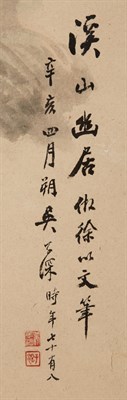 溪山幽居仿徐以文筆
辛亥四月朔吳子深時年七十有八